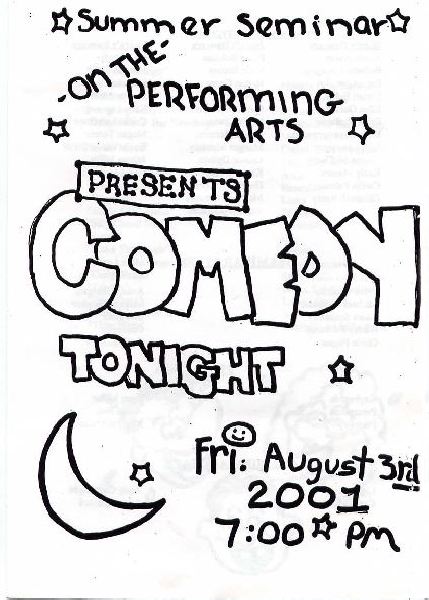 Summer Seminar
-ON THE-
PERFORMING
ARTS
PRESENTS
COMEDY
TONIGHT
Fri. August 3rd
2001
7:00 PM